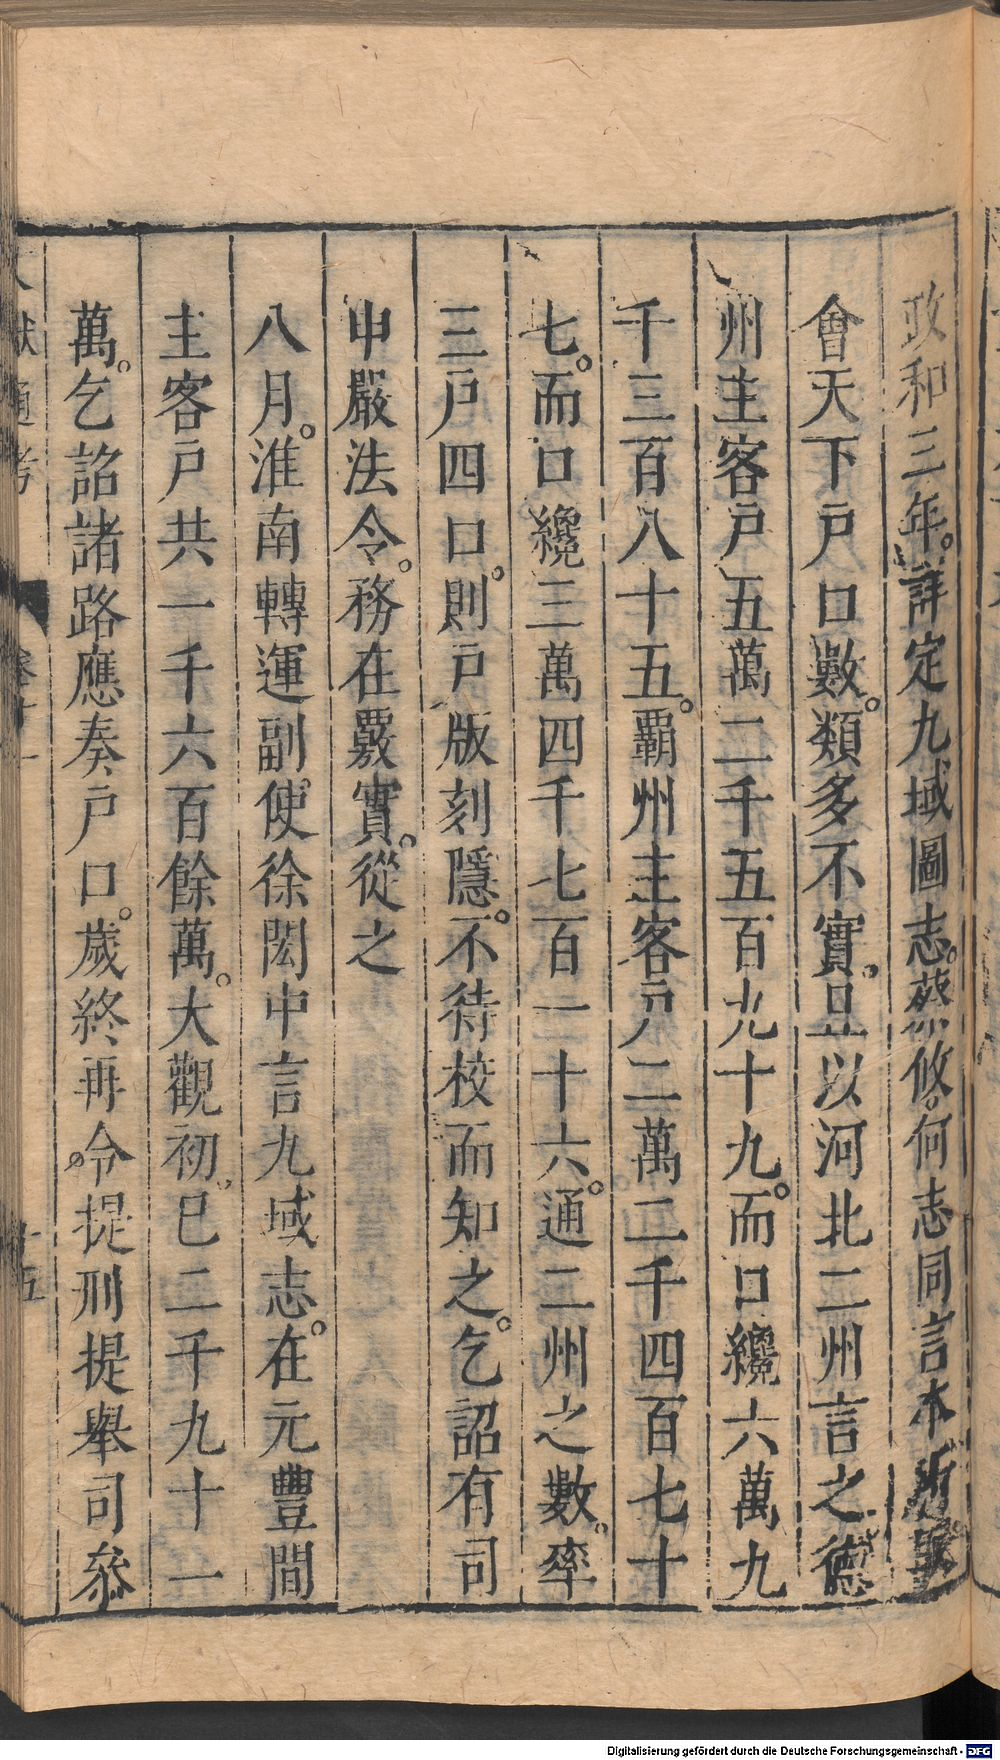 政和三年。詳定九域圖志。蔡攸。何志同言本所取
會天下戸口數。類多不實。且以河北二州言之。德
州主客戸五萬二千五百九十九。而口纔六萬九
千三百八十五。覇州主客戸二萬二千四百七十
七。而口纔三萬四千七百一十六。通二州之數。率
三戸四口。則戸版刻隱。不待校而知之。乞詔有司
申嚴法令。務在覈實。從之
八月。淮南轉運副使徐閎中言九域志。在元豐間
主客戸共一千六百餘萬。大觀初。已二千九十一
萬。乞詔諸路應奏戸口。歲終再令。提刑提舉司叅
文獻通考 卷十一 十五
Digitalisierung gefördert durch die Deutsche Forschungsgemeinschaft - DFG